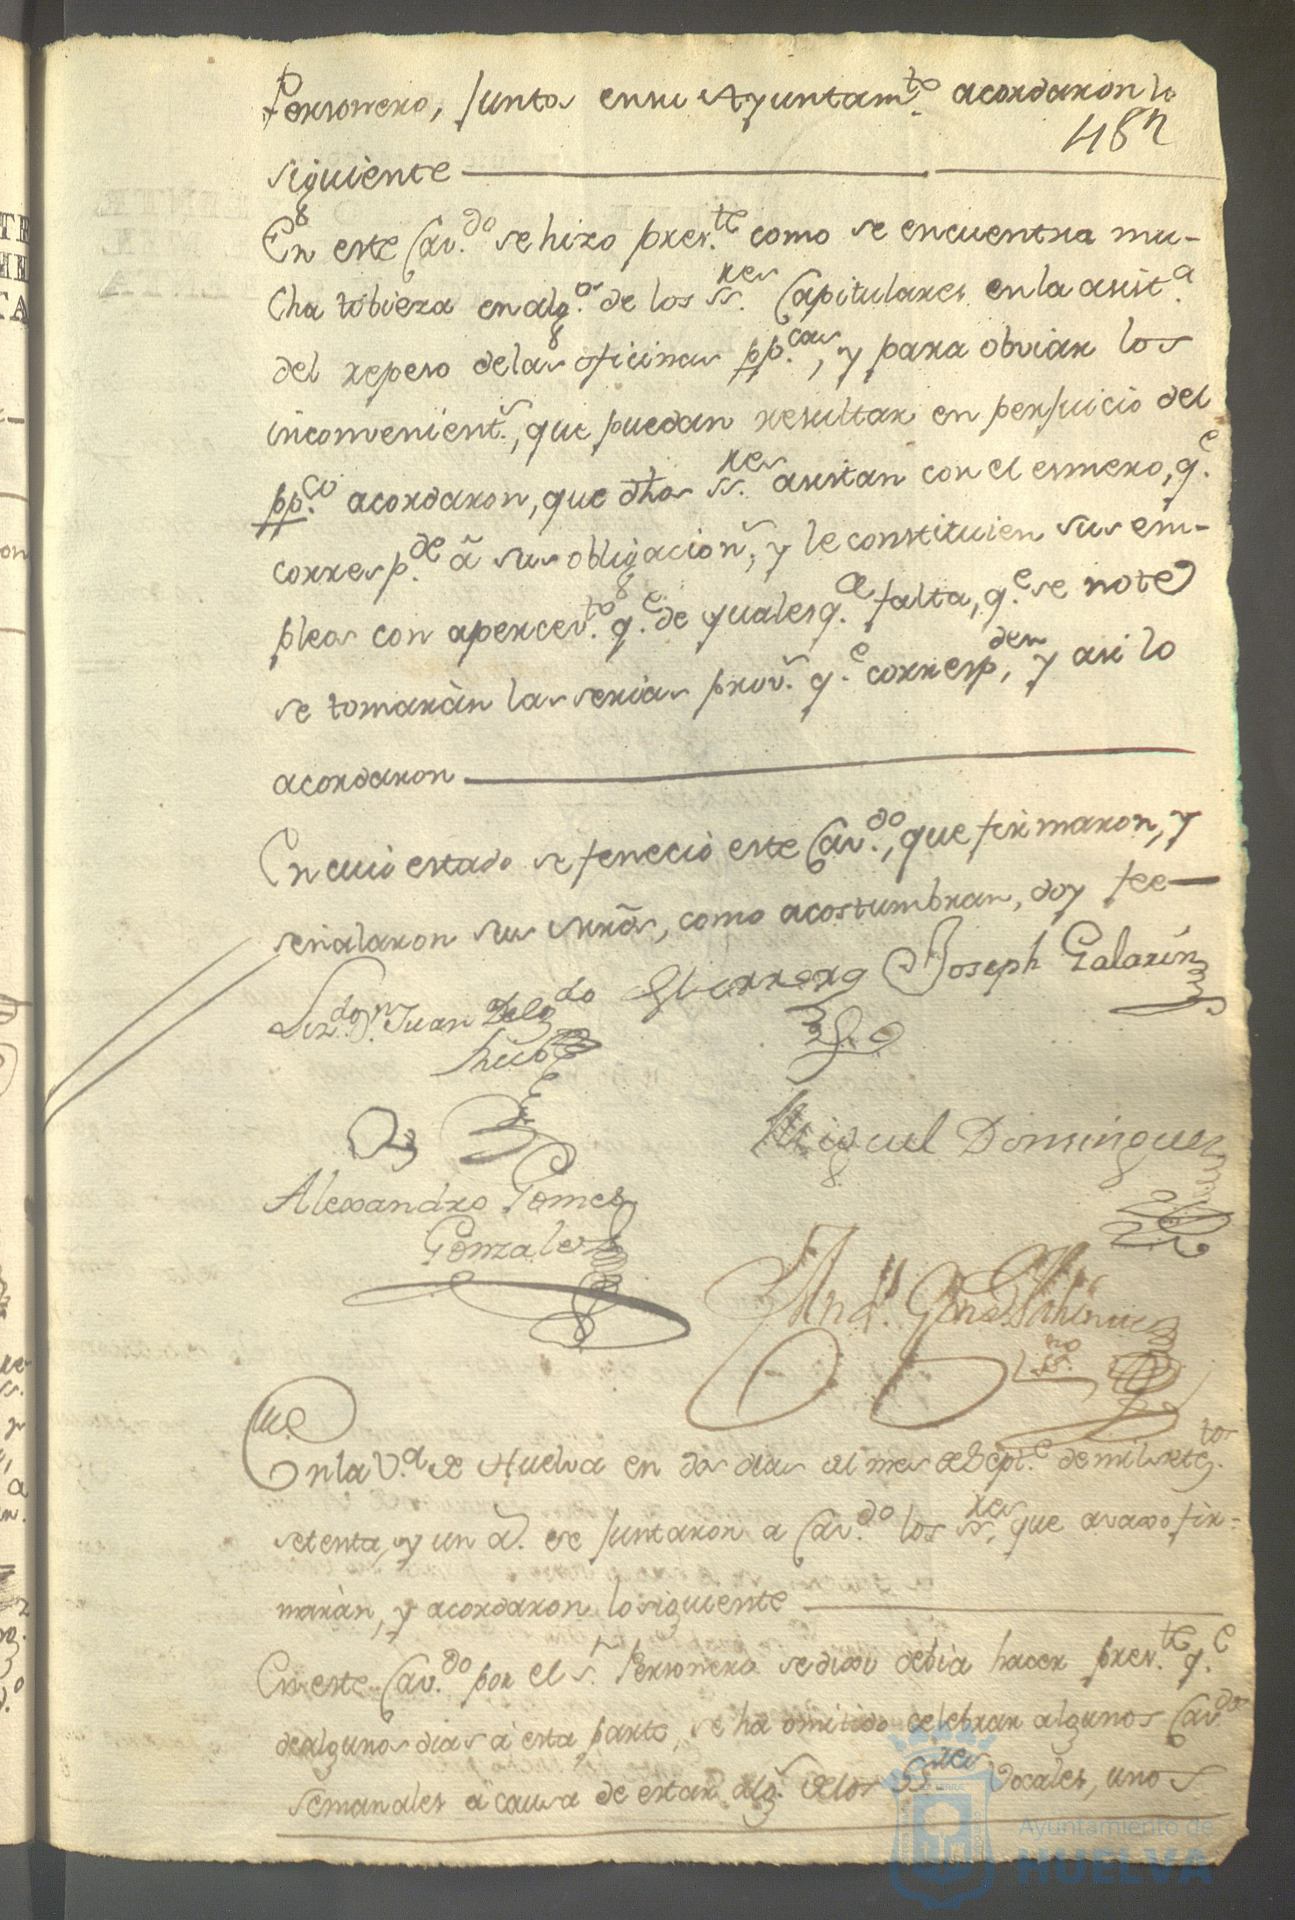 Personero, juntos en su Ayuntam.to acordaron lo
48n
siguiente
En este Cav.do se hizo pres.te como se encuentra mu-
cha tibieza en alg.os de los SS.res Capitulares en la asist.a
del repeso de las oficinas pp.cas, y para obviar los
inconvenient.s, que puedan resultar en perjuicio del
pp.co acordaron, que dhos SS.res asistan con el esmero, q.e
corresp.de â sus obligacion.s, y le constituien sus em-
pleos con apercev.to q.e de qualesq.a falta, q.e se note
se tomaràn las serias prov.s q.e corresp.den, y asi lo
acordaron
En cuio estado se feneciò este Cav.do, que firmaron, y
señalaron sus mrds, como acostumbran, doy fee
Liz.do D.n Juan Delgdo
Guerrero
Joseph Galazin
Miguel Dominguez
Alexandro Gomes
Gonzales
En la V.a de Huelva en dos dias del mes de Sept.e de mil setez.tos
setenta, y un a.s se juntaron a Cav.do los SS.res, que avaxo fir-
maràn, y acordaron lo siguiente
En este Cav.do por el S.r Personero se dixo debia hacer pres.te q.e
de algunos dias à esta parte, se ha omitido celebrar algunos Cav.dos
semanales â causa de estar alg.s de los SS.res Vocales, unos
Ayuntamiento de
HUELVA